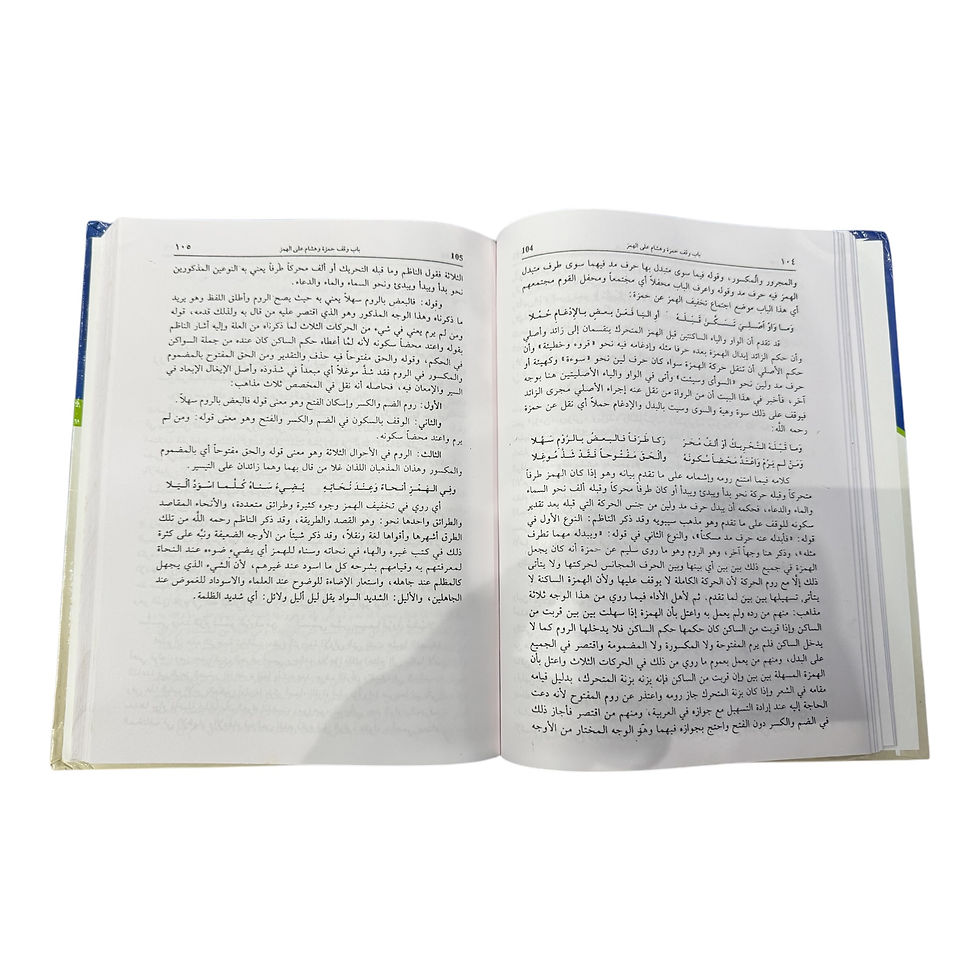 104 باب وقف حمزة وهشام على الهمز ١٠٤
والمجرور والمكسور، وقوله فيما سوى متبدل بها حرف مد فيهما سوى طرف متبدل
الهمز فيه حرف مد وقوله واعرف الباب محفلاً أي مجتمعاً ومحفل القوم مجتمعهم
أي هذا الباب موضع اجتماع تخفيف الهمز عن حمزة:
وَمَا وَاوٌ اصْلِيٌّ تَسَكَّنَ قَبْلَهُ أَوِ الْيَا فَعَنْ بَعْضٍ بِالإِدْغَامِ حُمِّلَا
قد تقدم أن الواو والياء الساكنتين قبل الهمز المتحرك ينقسمان إلى زائد وأصلي
وأن حكم الزائد إبدال الهمزة بعده حرفا مثله وإدغامه فيه نحو «قروء وخطيئة» وأن
حكم الأصلي أن تنقل حركة الهمزة سواء كان حرف لين نحو «سوءة» وكهيئة أو
حرف مد ولين نحو «السوأى وسيئت» وأتى في الواو والياء الأصليتين هنا بوجه
آخر، فأخبر في هذا البيت أن من الرواة من نقل عنه إجراء الأصلي مجرى الزائد
فيوقف على ذلك سوة وهية والسوى وسيت بالبدل والإدغام حملاً أي نقل عن حمزة
رحمه الله:
وَمَا قَبْلَهُ التَّحْرِيكُ أَوْ أَلِفٌ مُحَرَّ رَكًا طَرَفًا فَالْبَعْضُ بِالرَّوْمِ سَهَّلَا
وَمَنْ لَمْ يَرُمْ وَاعْتَدَّ مَحْضًا سُكُونَهُ وَأَلْحَقَ مَفْتُوحًا فَقَدْ شَذَّ مُوغِلَا
كلامه فيما امتنع رومه وإشمامه على ما تقدم بيانه وهو إذا كان الهمز طرفاً
متحركاً وقبله حركة نحو بدأ ويبدئ ويبدأ أو كان طرفاً محركاً وقبله ألف نحو السماء
والماء والدعاء، فحكمه أن يبدل حرف مد ولين من جنس الحركة التي قبله بعد تقدير
سكونه للوقف على ما تقدم وهو مذهب سيبويه وقد ذكر الناظم: النوع الأول في
قوله: «فأبدله عنه حرف مد مسكناً»، والنوع الثاني في قوله: «ويبدله مهما تطرف
مثله»، وذكر هنا وجهاً آخر، وهو الروم وهو ما روى سليم عن حمزة أنه كان يجعل
الهمزة في جميع ذلك بين بين أي بينها وبين الحرف المجانس لحركتها ولا يتأتى
ذلك إلّا مع روم الحركة لأن الحركة الكاملة لا يوقف عليها ولأن الهمزة الساكنة لا
يتأتى تسهيلها بين بين لما تقدم. ثم لأهل الأداء فيما روي من هذا الوجه ثلاثة
مذاهب: منهم من رده ولم يعمل به واعتل بأن الهمزة إذا سهلت بين بين قربت من
الساكن وإذا قربت من الساكن كان حكمها حكم الساكن فلا يدخلها الروم كما لا
يدخل الساكن فلم يرم المفتوحة ولا المكسورة ولا المضمومة واقتصر في الجميع
على البدل، ومنهم من يعمل بعموم ما روي من ذلك في الحركات الثلاث واعتل بأن
الهمزة المسهلة بين بين وإن قربت من الساكن فإنه بزنة المتحرك، بدليل قيامه
مقامه في الشعر وإذا كان بزنة المتحرك جاز رومه واعتذر عن روم المفتوح لأنه دعت
الحاجة إليه عند إرادة التسهيل مع جوازه في العربية، ومنهم من اقتصر فأجاز ذلك
في الضم والكسر دون الفتح واحتج بجوازه فيهما وهو الوجه المختار من الأوجه
105 باب وقف حمزة وهشام على الهمز ١٠٥
الثلاثة فقول الناظم وما قبله التحريك أو ألف محركاً طرفاً يعني به النوعين المذكورين
نحو بدأ ويبدأ ويبدئ ونحو السماء والماء والدعاء.
وقوله: فالبعض بالروم سهلاً يعني به حيث يصح الروم وأطلق اللفظ وهو يريد
ما ذكرناه وهذا الوجه المذكور وهو الذي اقتصر عليه من قال به ولقلك قدمه، قوله
ومن لم يرم يعني في شيء من الحركات الثلاث لما ذكرناه من العلة وإليه أشار الناظم
بقوله واعتد محضاً سكونه لأنه لمّا أعطاه حكم الساكن كان عنده من جملة السواكن
في الحكم، وقوله والحق مفتوحاً فيه حذف والتقدير ومن الحق المفتوح بالمضموم
والمكسور في الروم فقد شذّ موغلاً أي مبعداً في شذوذه وأصل الإيغال الإبعاد في
السير والإمعان فيه، فحاصله أنه نقل في المخصص ثلاث مذاهب:
الأول: روم الضم والكسر وإسكان الفتح وهو معنى قوله فالبعض بالروم سهلاً.
والثاني: الوقف بالسكون في الضم والكسر والفتح وهو معنى قوله: ومن لم
يرم واعتد محضاً سكونه.
الثالث: الروم في الأحوال الثلاثة وهو معنى قوله: والحق مفتوحاً أي بالمضموم
والمكسور وهذان المذهبان اللذان غلا من قال بهما وهما زائدان على التيسير.
وَفِي الْهَمْزِ أَنْحَاءٌ وَعِنْدَ نُحَاتِهِ يُضِيءُ سَنَاهُ كُلَّمَا اسْوَدَّ أَلْيَلَا
أي روي في تخفيف الهمز وجوه كثيرة وطرائق متعددة، والأنحاء المقاصد
والطرائق واحدها نحو: وهو القصد والطريقة، وقد ذكر الناظم رحمه الله من تلك
الطرق أشهرها وأقواها لغة ونقلاً، وقد ذكر شيئاً من الأوجه الضعيفة ونبَّه على كثرة
ذلك في كتب غيره والهاء في نحاته وسناه للهمز أي يضيء ضوءه عند النحاة
لمعرفتهم به وقيامهم بشرحه كل ما اسود عند غيرهم، لأن الشيء الذي يجهل
كالمظلم عند جاهله، واستعار الإضاءة للوضوح عند العلماء والاسوداد للغموض عند
الجاهلين، والأليل: الشديد السواد يقل ليل أليل ولائل: أي شديد الظلمة.